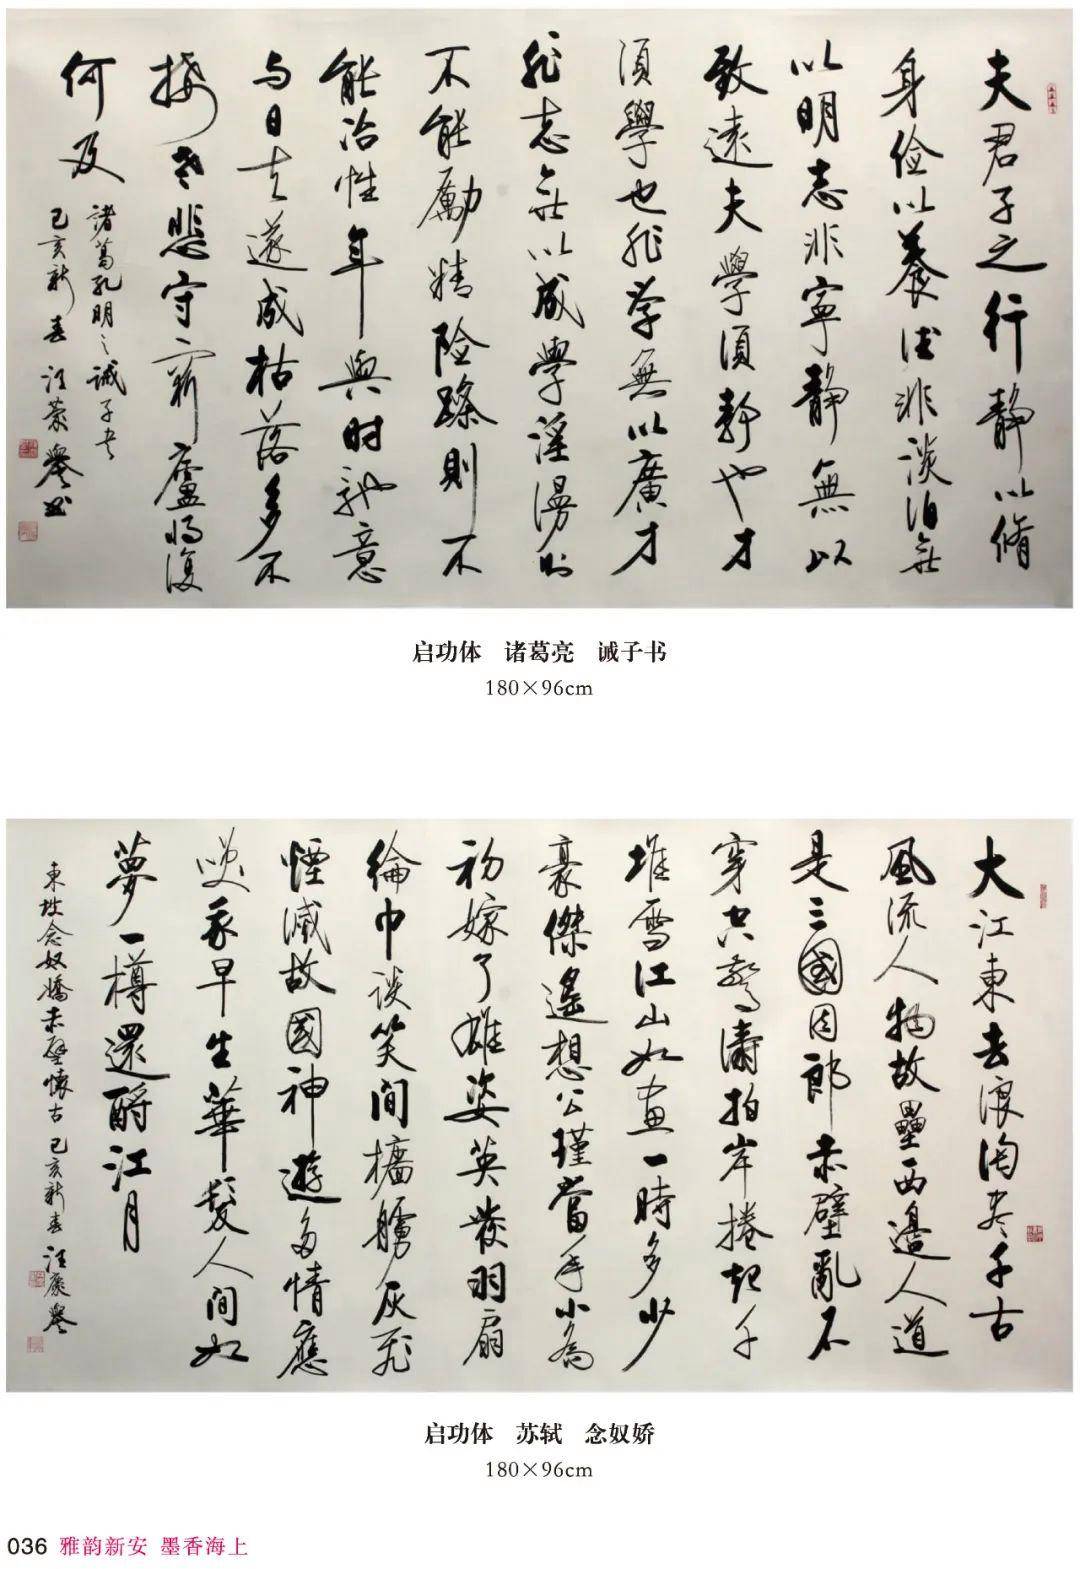 夫君子之行靜以脩
身俭以養德非淡泊無
以明志非寧靜無以
致遠夫學須靜也才
須學也非学無以廣才
非志無以成學淫漫則
不能勵精險躁則不
能冶性年與時馳意
与日去遂成枯落多不
接世悲守窮廬將復
何及
諸葛孔明之誡子书
己亥新春 汪
启功体 诸葛亮 诫子书
180×96cm
大江東去浪淘尽千古
風流人物故壘西邊人道
是三國周郎赤壁亂石
穿空驚濤拍岸捲起千
堆雪江山如畫一時多少
豪傑遙想公瑾當年小喬
初嫁了雄姿英發羽扇
綸巾談笑間檣艣灰飛
煙滅故國神遊多情應
笑我早生華髮人間如
夢一樽還酹江月
東坡念奴嬌赤壁懷古 己亥新春 汪
启功体 苏轼 念奴娇
180×96cm
036 雅韵新安 墨香海上